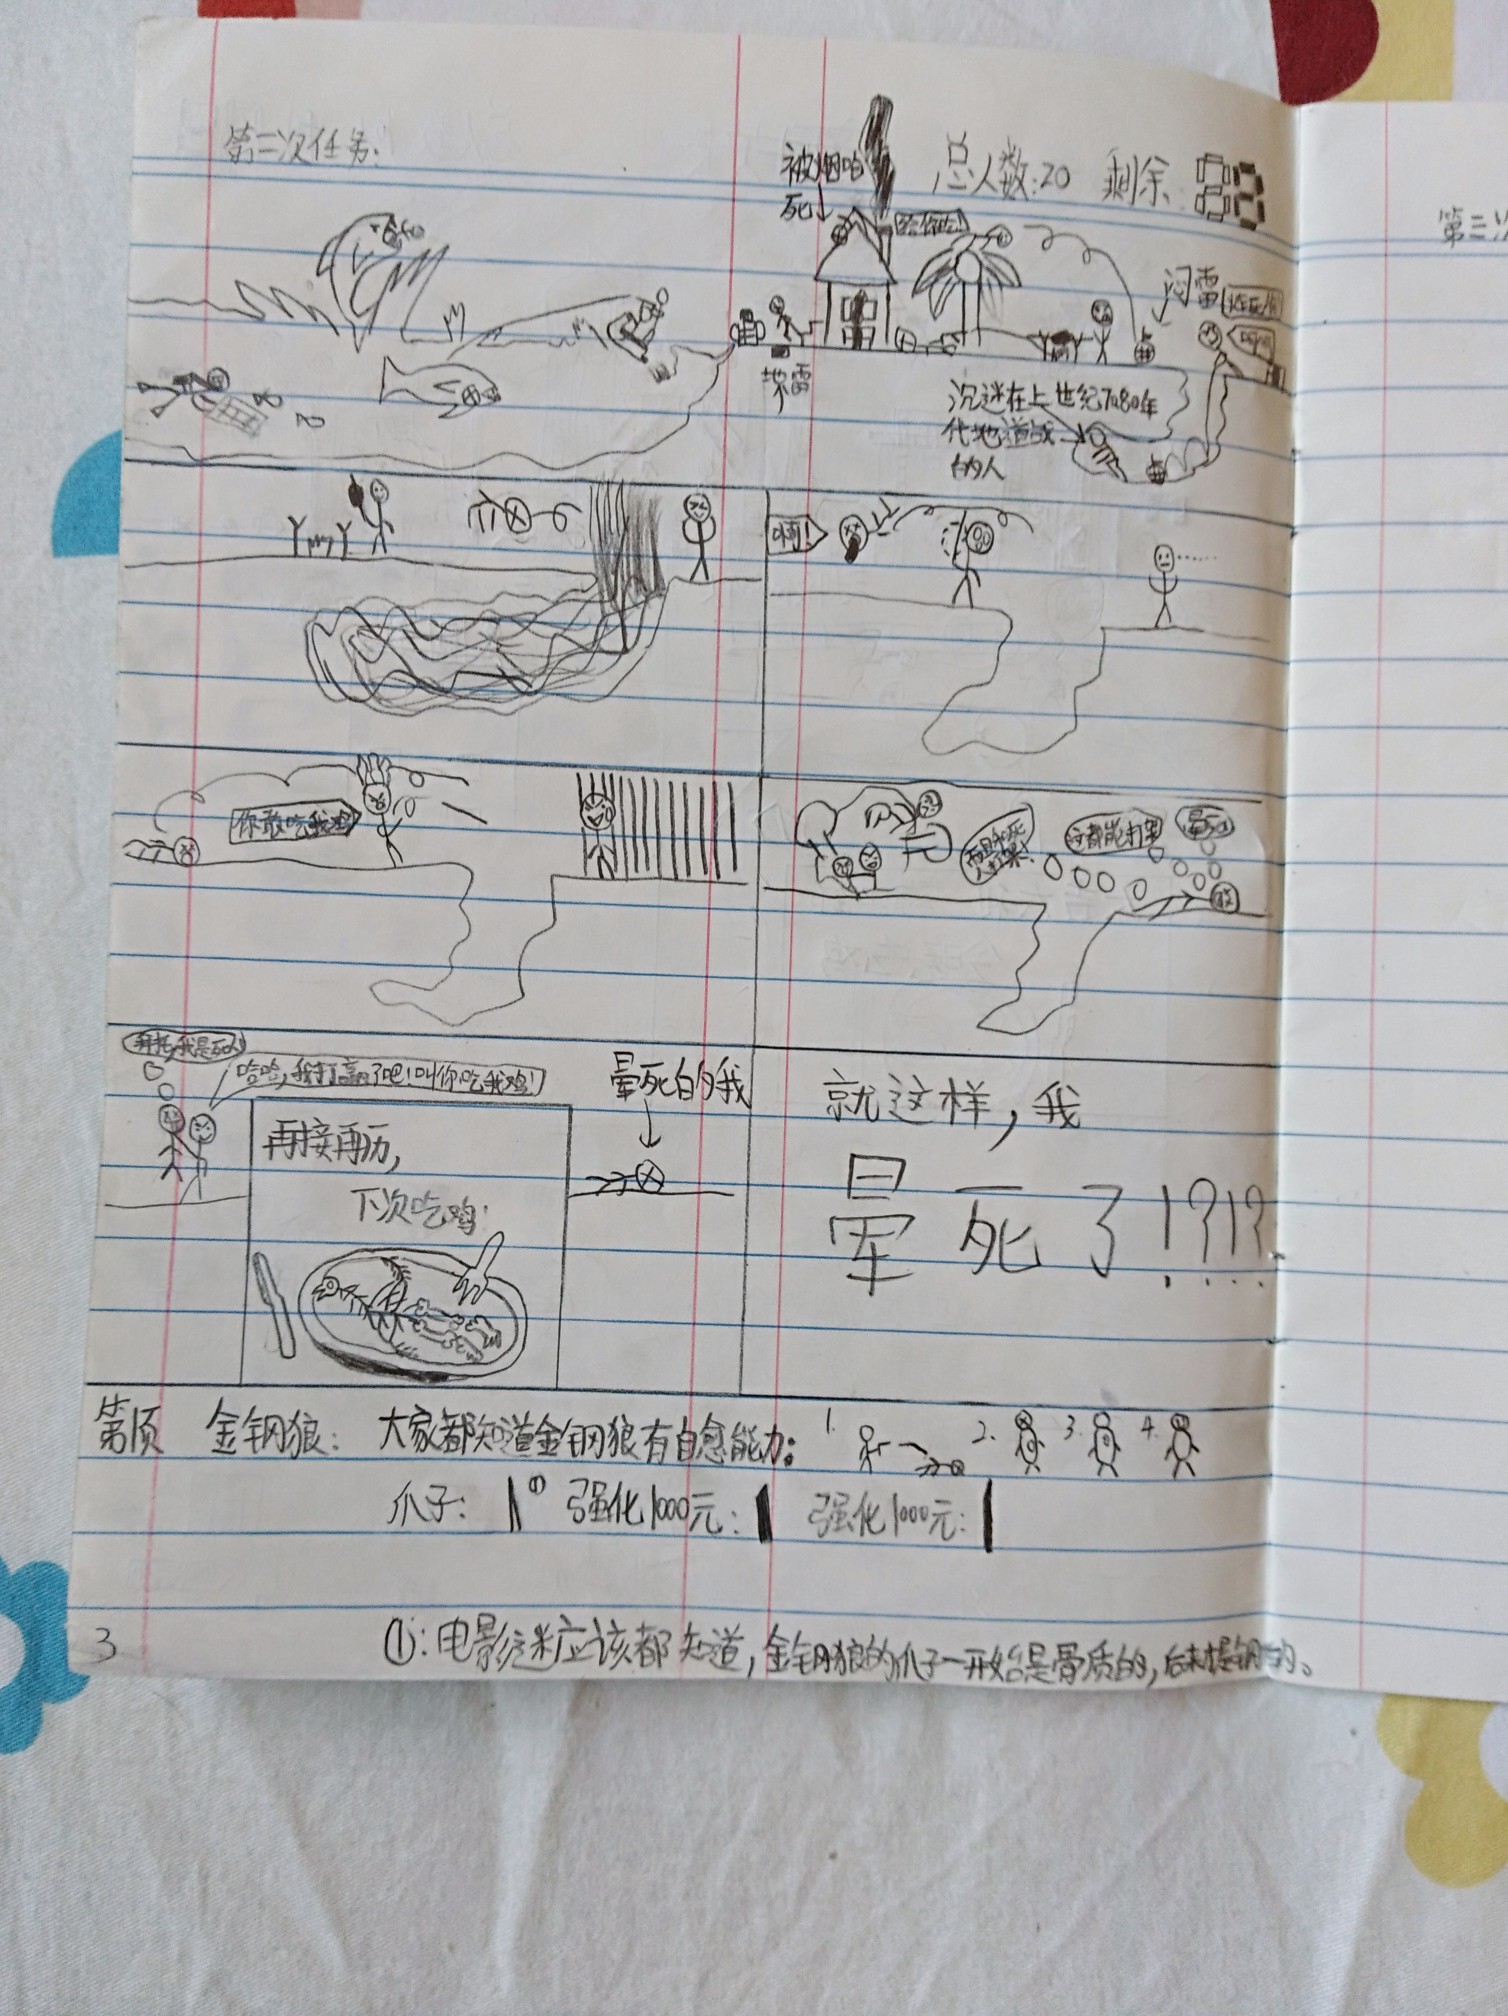 第三次任务:
总人数:20 剩余:
被烟呛
死
闷雷
地雷
沉迷在上世纪7080年
代地道战
的人
啊!
你敢吃我鸡
这都能打架
晕死
拜托,我是死人!
哈哈,我打赢了吧!叫你吃我鸡!
再接再历,
下次吃鸡!
晕死的我
就这样,我
晕死了!?!?
第页 金钢狼: 大家都知道金钢狼有自愈能力: 1. 2. 3. 4.
爪子: ① 强化1000元: 强化1000元:
3
①:电影迷应该都知道,金钢狼的爪子一开始是骨质的,后来是钢的。
第三次